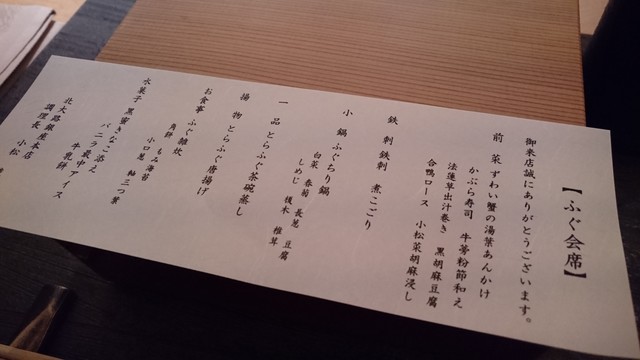 【ふぐ会席】
御来店誠にありがとうございます。
前菜 ずわい蟹の湯葉あんかけ
かぶら寿司 牛蒡粉節和え
法蓮草出汁巻き 黒胡麻豆腐
合鴨ロース 小松菜胡麻浸し
鉄刺 鉄刺 煮こごり
小鍋 ふぐちり鍋
白菜 春菊 長葱 豆腐
しめじ 榎木 椎茸
一品 とらふぐ茶碗蒸し
揚物 とらふぐ唐揚げ
お食事 ふぐ雑炊
角餅 もみ海苔
小口葱 軸三つ葉
水菓子 黒蜜きなこ添え
バニラ最中アイス
牛乳餅
北大路銀座本店
調理長 小松